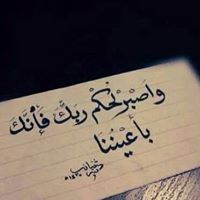 وَاصْبِرْ لِحُكْمِ رَبِّكَ فَإِنَّكَ
بِأَعْيُنِنَا